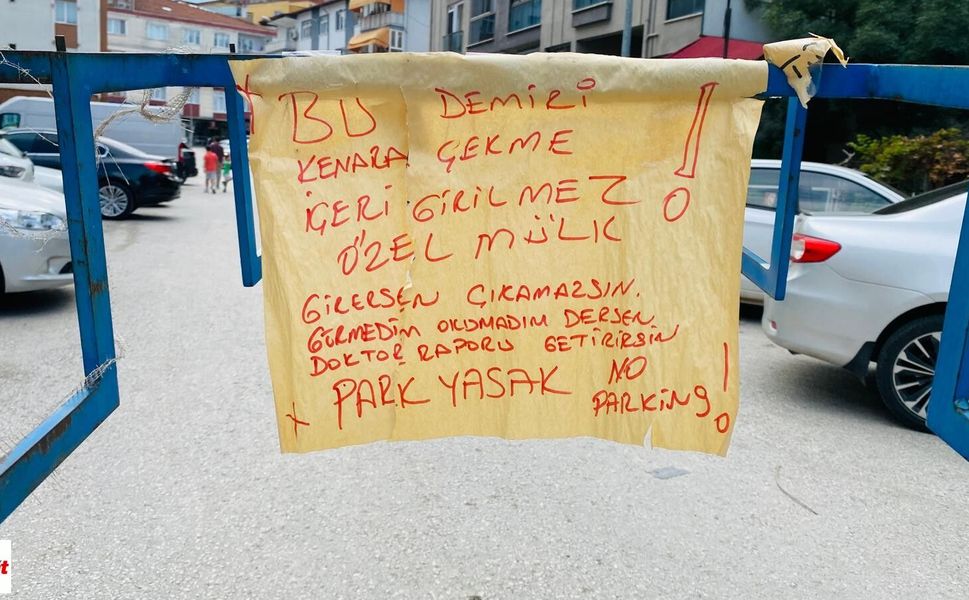 BU DEMİRİ !
KENARA ÇEKME
İÇERİ GİRİLMEZ
ÖZEL MÜLK
GİRERSEN ÇIKAMAZSIN.
GÖRMEDİM OKUMADIM DERSEN
DOKTOR RAPORU GETİRİRSİN
PARK YASAK NO
PARKING !